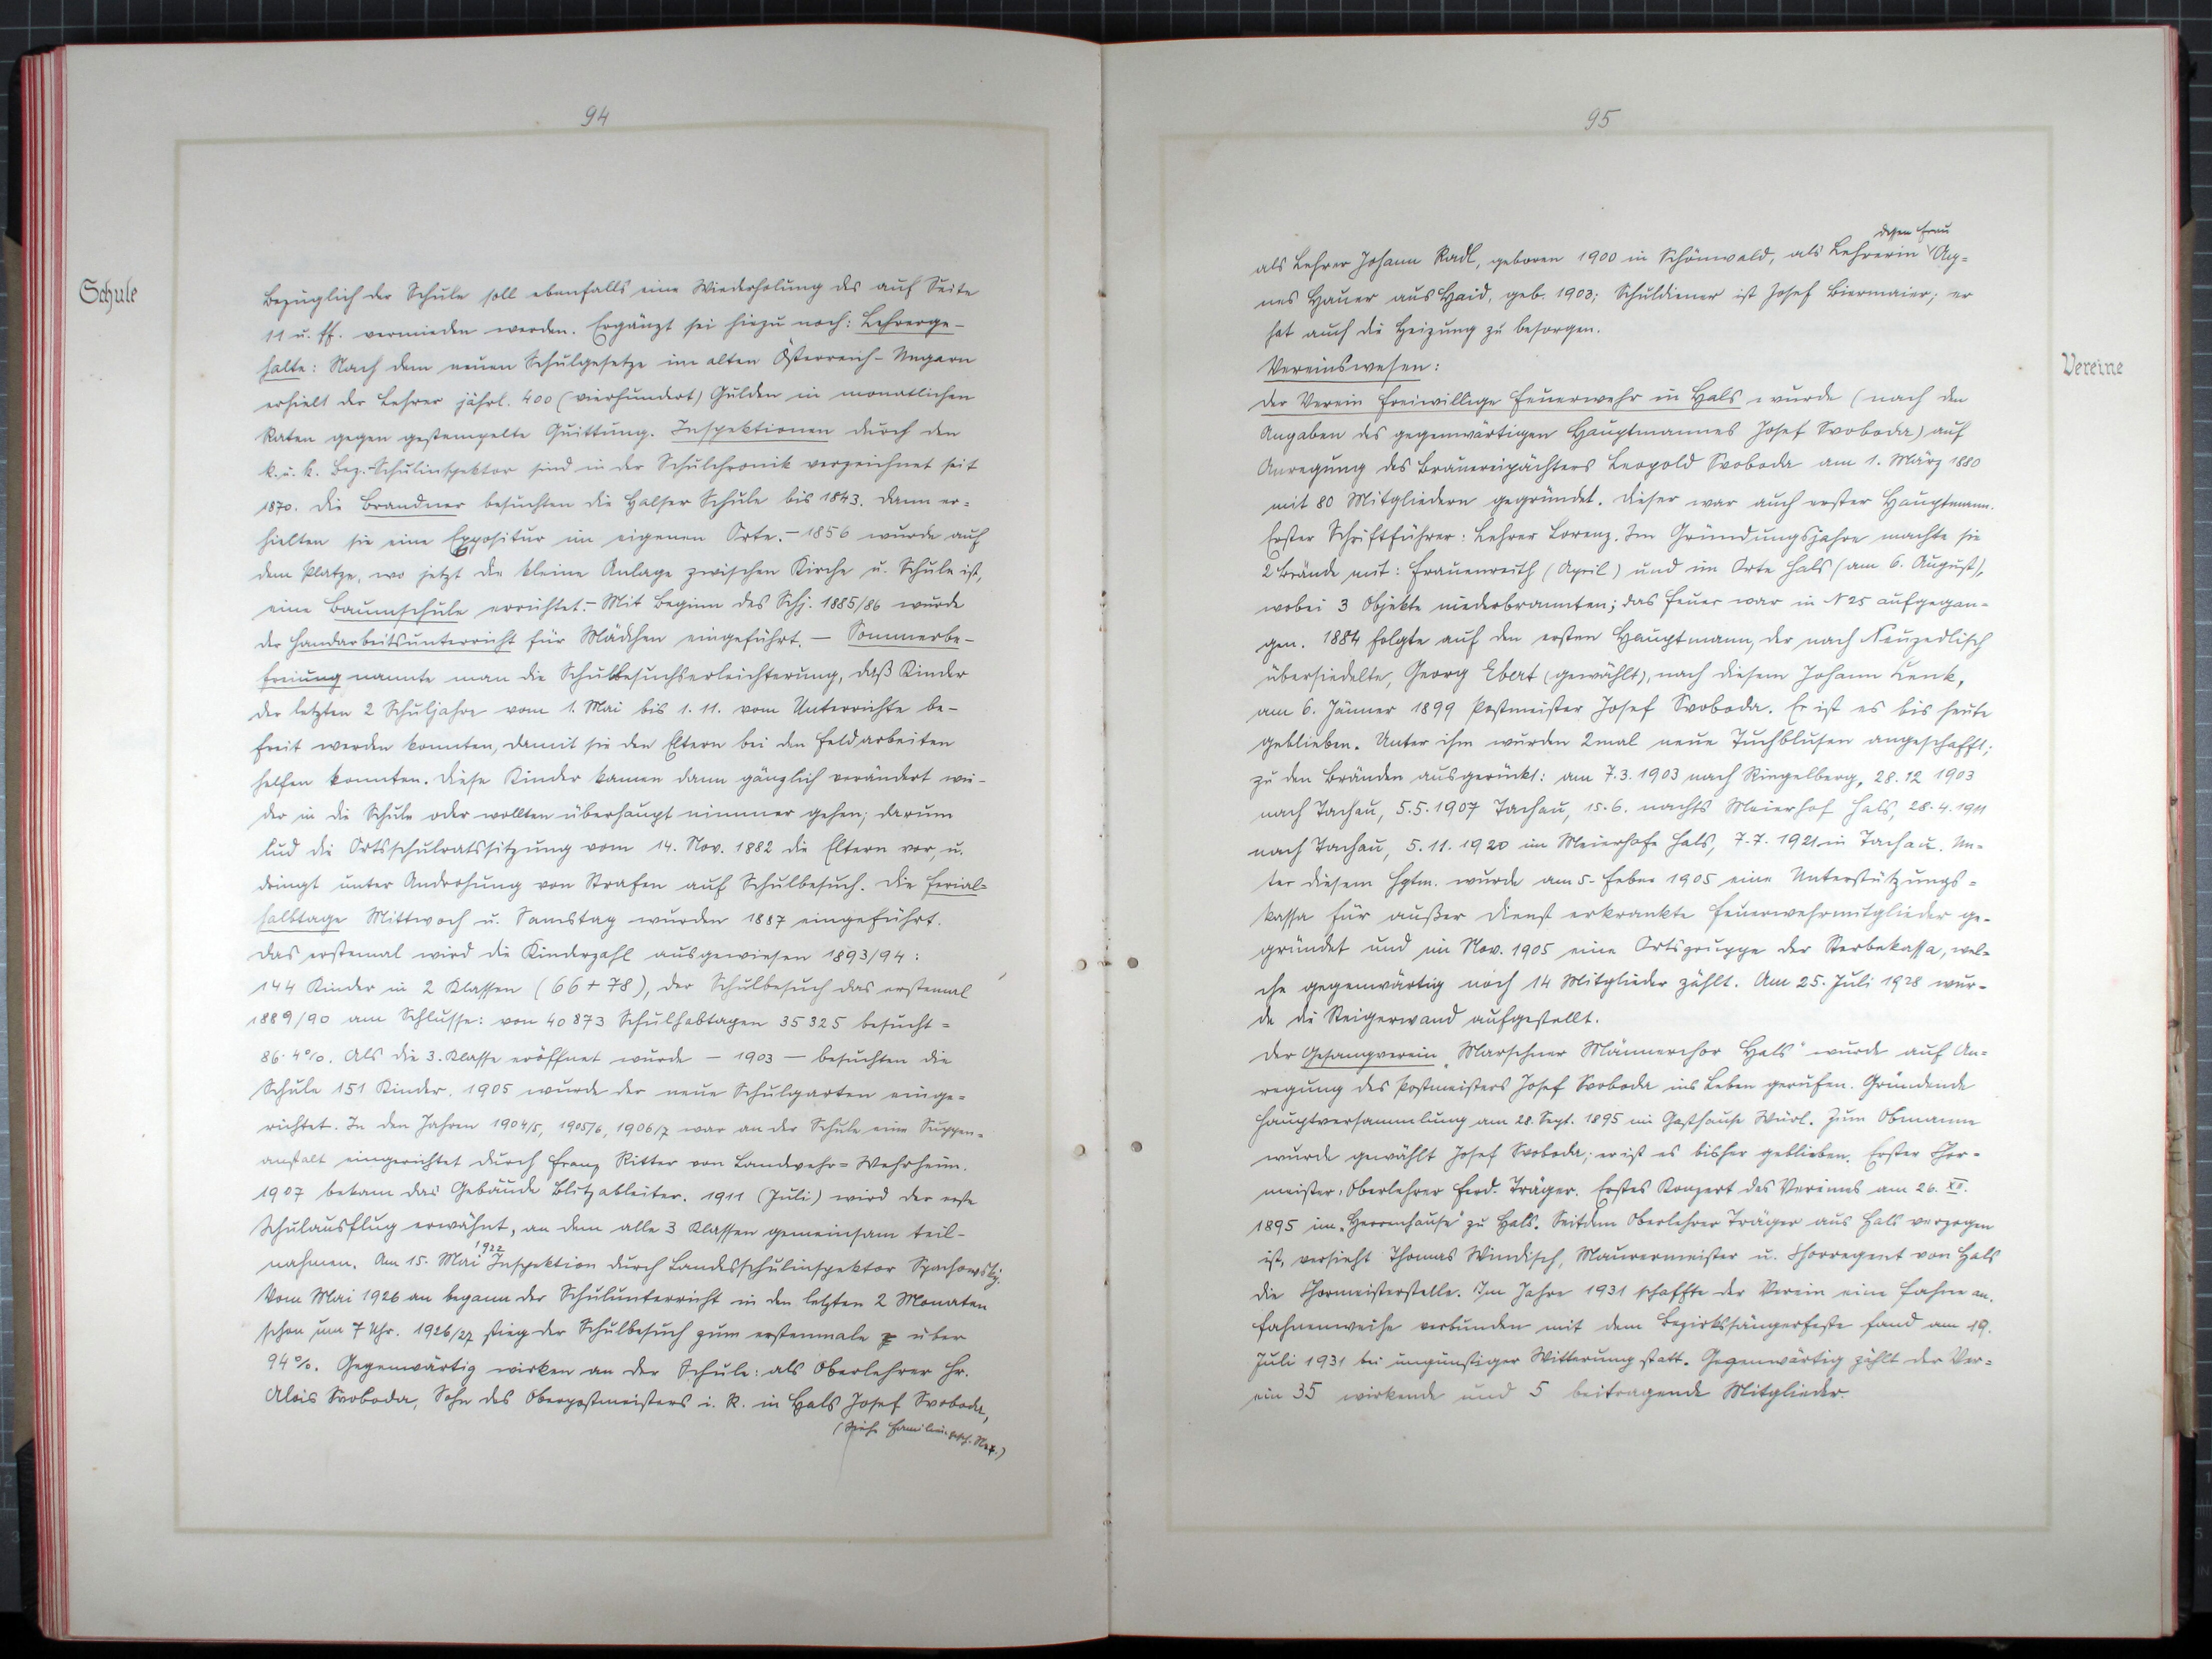 94
Schule
Bezüglich der Schule soll ebenfalls eine Wiederholung des auf Seite
11 u. ff. vermieden werden. Ergänzt sei hiezu noch: Lehrerge-
halte: Nach dem neuen Schulgesetze im alten Österreich-Ungarn
erhielt der Lehrer jährl. 400 (vierhundert) Gulden in monatlichen
Raten gegen gestempelte Quittung. Inspektionen durch den
k. u. k. Bez.-Schulinspektor sind in der Schulchronik verzeichnet seit
1870. Die Brandner besuchten die Halser Schule bis 1843. Dann er-
hielten sie eine Expositur im eigenen Orte. - 1856 wurde auf
dem Platze, wo jetzt die kleine Anlage zwischen Kirche u. Schule ist,
eine Baumschule errichtet. - Mit Beginn des Schj. 1885/86 wurde
der Handarbeitsunterricht für Mädchen eingeführt. - Sommerbe-
freiung nannte man die Schulbesuchserleichterung, daß Kinder
der letzten 2 Schuljahre vom 1. Mai bis 1. 11. vom Unterrichte be-
freit werden konnten, damit sie den Eltern bei den Feldarbeiten
helfen konnten. Diese Kinder kamen dann gänzlich verändert wie-
der in die Schule oder wollten überhaupt nimmer gehen; darum
lud die Ortsschulratssitzung vom 14. Nov. 1882 die Eltern vor, u.
dringt unter Androhung von Strafen auf Schulbesuch. Die Ferial-
halbtage Mittwoch u. Samstag wurden 1887 eingeführt.
Das erstemal wird die Kinderzahl ausgewiesen 1893/94:
144 Kinder in 2 Klassen (66 + 78), der Schulbesuch das erstemal
1889/90 am Schlusse: von 40873 Schulhabtagen 35325 besucht =
86·4%. Als die 3. Klasse eröffnet wurde - 1903 - besuchten die
Schule 151 Kinder. 1905 wurde der neue Schulgarten einge-
richtet. In den Jahren 1904/5, 1905/6, 1906/7 war an der Schule eine Suppen-
anstalt eingerichtet durch Franz Ritter von Landwehr-Wehrheim.
1907 bekam das Gebäude Blitzableiter. 1911 (Juli) wird der erste
Schulausflug erwähnt, an dem alle 3 Klassen gemeinsam teil-
nahmen. Am 15. Mai 1922 Inspektion durch Landesschulinspektor Spachowsky.
Vom Mai 1926 an begann der Schulunterricht in den letzten 2 Monaten
schon um 7 Uhr. 1926/27 stieg der Schulbesuch zum erstenmale über
94%. Gegenwärtig wirken an der Schule: als Oberlehrer Hr.
Alois Svoboda, Sohn des Oberpostmeisters i. R. in Hals Josef Svoboda,
(Sieh Familien-gesch.
95
Vereine
dessen Frau
als Lehrer Johann Radl, geboren 1900 in Schönwald, als Lehrerin Ag-
nes Hauer aus Haid, geb. 1903; Schuldiener ist Josef Biermaier; er
hat auch die Heizung zu besorgen.
Vereinswesen:
Der Verein freiwillige Feuerwehr in Hals wurde (nach den
Angaben des gegenwärtigen Hauptmannes Josef Svoboda) auf
Anregung des Brauereipächters Leopold Svoboda am 1. März 1880
mit 80 Mitgliedern gegründet. Dieser war auch erster Hauptmann.
Erster Schriftführer: Lehrer Lorenz. Im Gründungsjahre machte sie
2 Brände mit: Frauenreith (April) und im Orte Hals (am 6. August),
wobei 3 Objekte niederbrannten; das Feuer war in N 25 aufgegan-
gen. 1884 folgte auf den ersten Hauptmann, der nach Neuzedlisch
übersiedelte, Georg Ebert (gewählt), nach diesem Johann Lenk,
am 6. Jänner 1899 Postmeister Josef Svoboda. Er ist es bis heute
geblieben. Unter ihm wurden 2mal neue Tuchblusen angeschafft;
zu den Bränden ausgerückt: am 7.3.1903 nach Ringelberg, 28.12 1903
nach Tachau, 5.5.1907 Tachau, 15.6. nachts Meierhof Hals, 28.4.1911
nach Tachau, 5.11.1920 im Meierhofe Hals, 7.7.1921 in Tachau. Un-
ter diesem Hptm. wurde am 5. Feber 1905 eine Unterstützungs-
kassa für außer Dienst erkrankte Feuerwehrmitglieder ge-
gründet und im Nov. 1905 eine Ortsgruppe der Sterbekassa, wel-
che gegenwärtig noch 14 Mitglieder zählt. Am 25. Juli 1928 wur-
de die Steigerwand aufgestellt.
Der Gesangverein „Marschner Männerchor Hals" wurde auf An-
regung des Postmeisters Josef Svoboda ins Leben gerufen. Gründende
Hauptversammlung am 28. Sept. 1895 im Gasthause Würl. Zum Obmanne
wurde gewählt Josef Svoboda; er ist es bisher geblieben. Erster Chor-
meister: Oberlehrer Ferd. Träger. Erstes Konzert des Vereines am 26. XII.
1895 im „Herrenhause" zu Hals. Seitdem Oberlehrer Träger aus Hals verzogen
ist, versieht Thomas Windisch, Maurermeister u. Chorregent von Hals
die Chormeisterstelle. Im Jahre 1931 schaffte der Verein eine Fahne an.
Fahnenweihe verbunden mit dem Bezirkssängerfeste fand am 19.
Juli 1931 bei ungünstiger Witterung statt. Gegenwärtig zählt der Ver-
ein 35 wirkende und 5 beitragende Mitglieder.